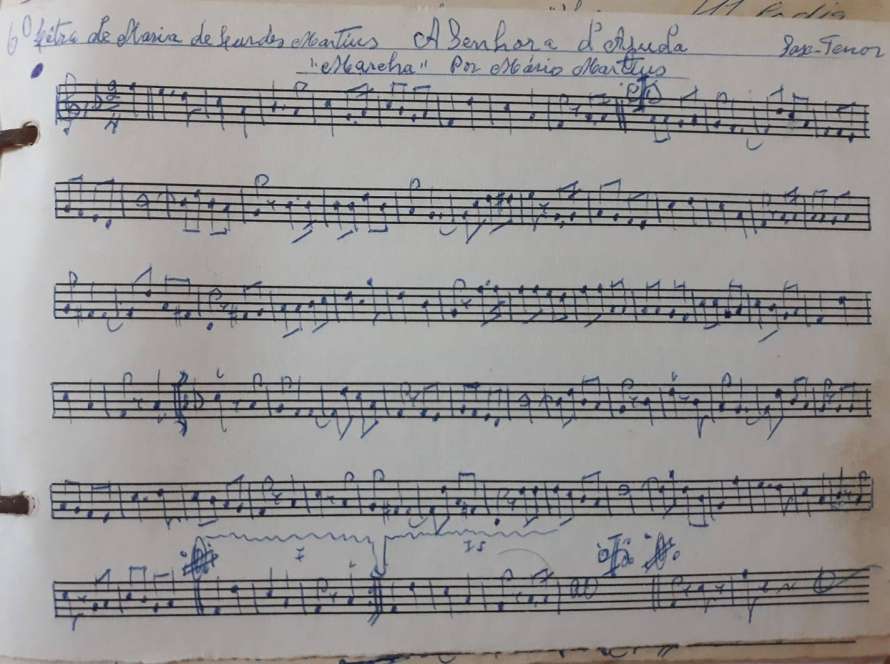 6º Letra de Maria de Lurdes Martins A Senhora d'Ajuda Sax-Tenor
"Marcha" Por Mário Martins
2
4
I